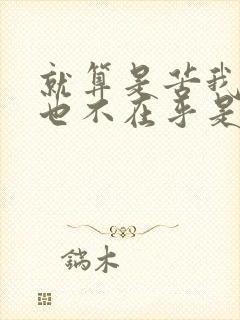 就算是苦我
也不在乎是
鎬木